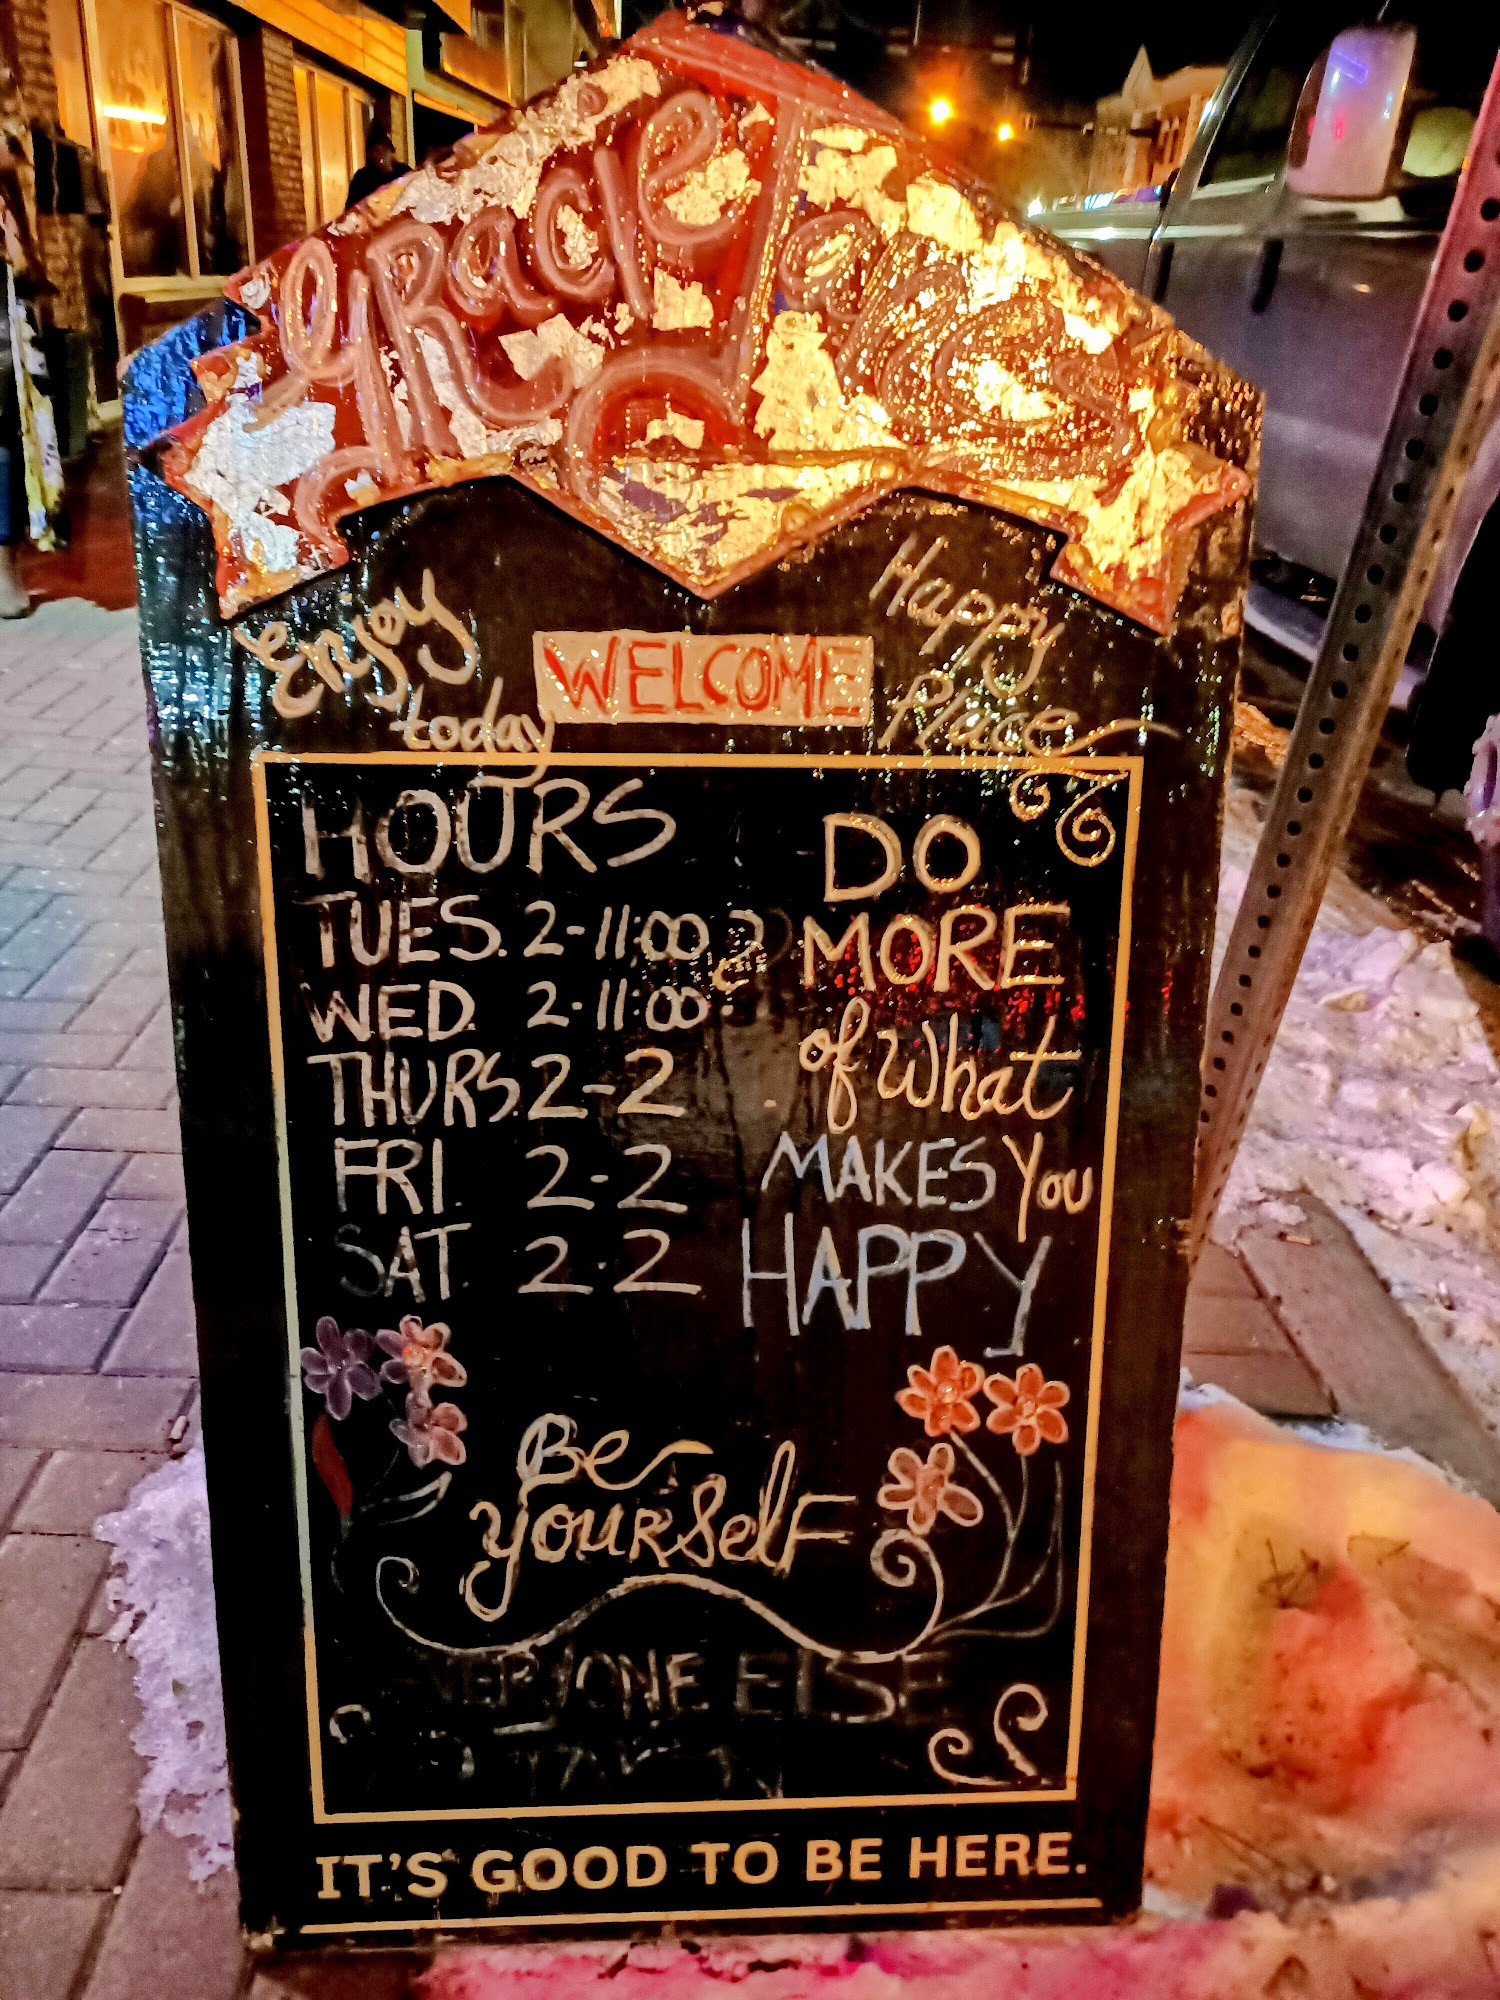 Gracie Jane's
Enjoy
today
WELCOME
Happy
Place
HOURS
TUES. 2-11:00
WED. 2-11:00
THURS. 2-2
FRI. 2-2
SAT. 2-2
DO
MORE
of What
MAKES You
HAPPY
Be
yourself
EVERYONE ELSE
IT'S GOOD TO BE HERE.